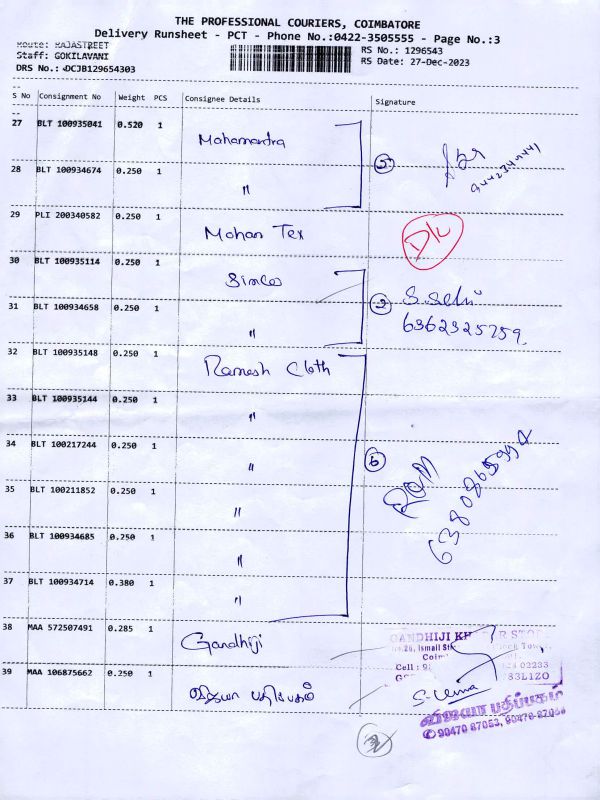 THE PROFESSIONAL COURIERS, COIMBATORE
Delivery Runsheet - PCT - Phone No.:0422-3505555 - Page No.:3
Route: RAJASTREET
RS No.: 1296543
Staff: GOKILAVANI
RS Date: 27-Dec-2023
DRS No.: DCJB129654303
S No Consignment No Weight PCS Consignee Details Signature
27 BLT 100935041 0.520 1 Mahamantra
28 BLT 100934674 0.250 1 〃
29 PLI 200340582 0.250 1 Mohan Tex D/L
30 BLT 100935114 0.250 1 Simco
31 BLT 100934658 0.250 1 〃 6362325259
32 BLT 100935148 0.250 1 Ramesh Cloth
33 BLT 100935144 0.250 1 〃
34 BLT 100217244 0.250 1 〃 6
35 BLT 100211852 0.250 1 〃
36 BLT 100934685 0.250 1 〃
37 BLT 100934714 0.380 1 〃
38 MAA 572507491 0.285 1 Gandhiji
GANDHIJI
39 MAA 106875662 0.250 1 விஜயா பதிப்பகம்
விஜயா பதிப்பகம்